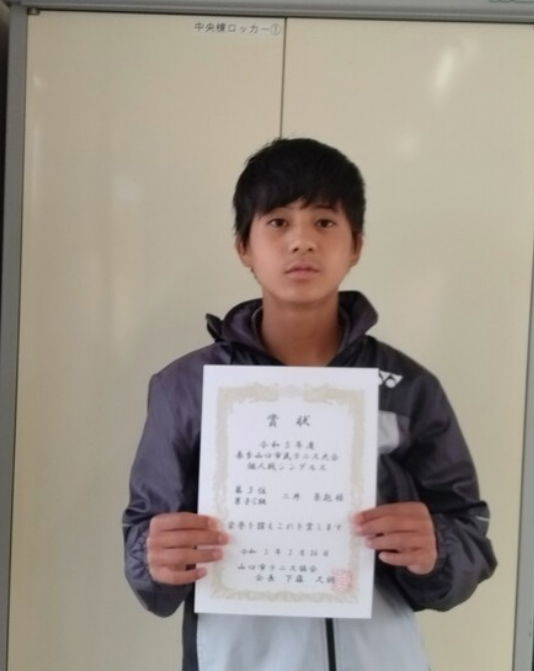 中央棟ロッカー①
賞状
令和3年度
春季山口市民テニス大会
個人戦シングルス
第3位
男子C級 二井
栄誉を讃えこれを賞します
令和 3年 月 日
山口市テニス協会
会長 下